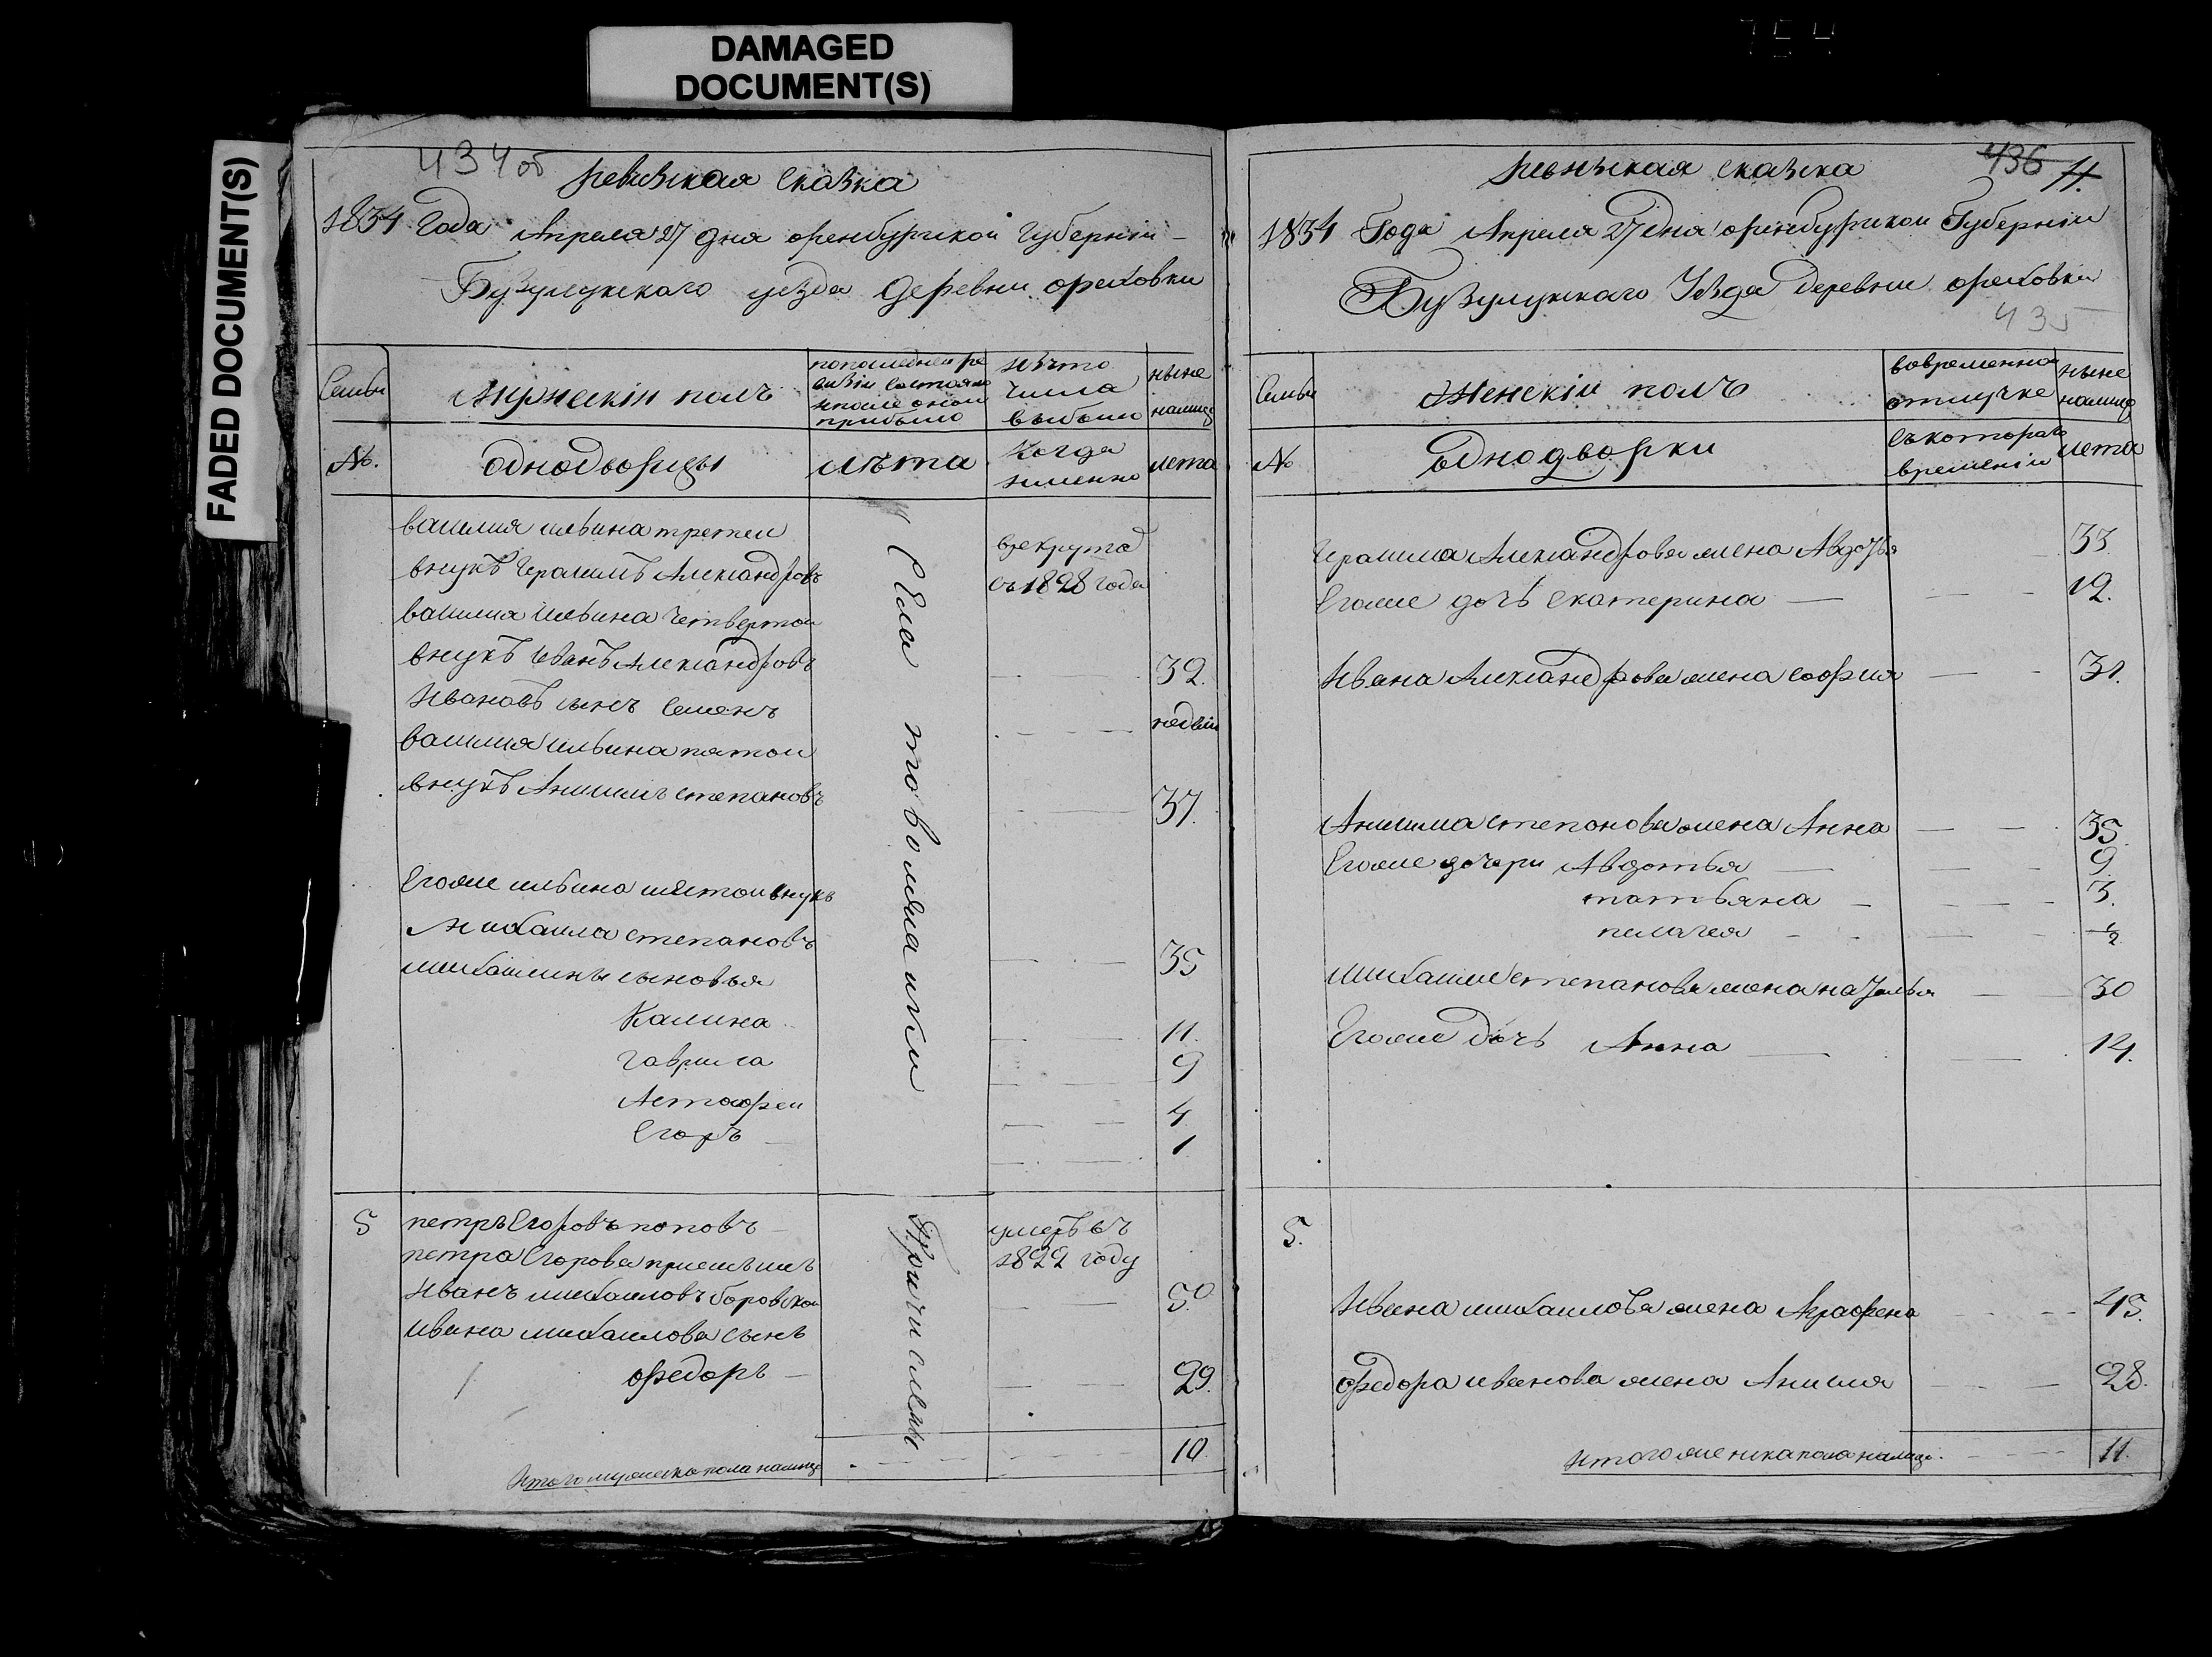 DAMAGED
DOCUMENT(S)
FADED DOCUMENT(S)
434об
ревизкая сказка
1834 Года Апреля 27 дня оренбургской Губернии
Бузулукскаго уезда Деревни ореховки
Семьи
Мужескiи полъ
попоследнеи ре
визiи состояло
ипосле онои
прибыло
изъто
числа
выбыло
ныне
налицо
№.
однодворцы
лѣта
Когда
именно
лета
василия ильина третеи
внукъ Герасимъ Александровъ
врекрута
съ 1828 года
василия ильина четвертои
внукъ Иванъ Александровъ
32.
Ивановъ сынъ Семенъ
недели
василия ильина пятои
внукъ Анисимъ степановъ
37.
Егоже ильина шестои внукъ
Михаила степановъ
35
михаилины сыновья
Калина
11.
гаврила
9
Астафеи
4
Егоръ
1
5
петръ Егоровъ поповъ
умеръ въ
1822 году
петра Егорова приемышъ
Иванъ михаиловъ боровскои
50
ивана михаилова сынъ
федоръ
29.
Причислены
Итого мужеска пола налицо
10.
ревизкая сказка
436
11.
1834 Года Апреля 27 дня оренбургской Губернии
Бузулукскаго Уезда Деревни ореховки
435
Семьи
Женскiи полъ
вовременнои
отлучке
ныне
налицо
№
однодворки
съкотораго
времени
лета
Герасима Александрова жена Авдотья
33
Егоже дочь екатерина
12.
Ивана Александрова жена софия
31.
Анисима степанова жена Анна
35.
Егоже дочери Авдотья
9.
татьяна
3.
пелагея
1/2
михаила степанова жена наталья
30
Егоже дочь Анна
14.
5.
Ивана михаилова жена Аграфена
45.
федора иванова жена Анисия
28.
Итого женска пола налицо
11.